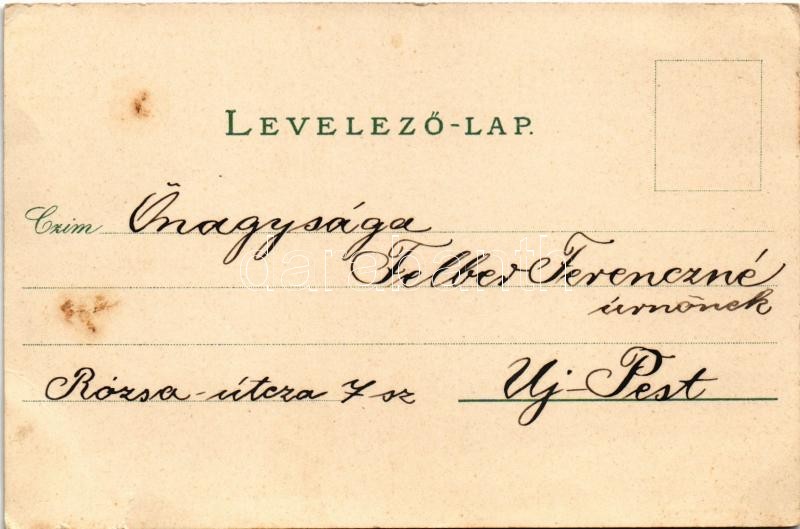 LEVELEZŐ-LAP.
Czim Őnagysága
Felber Ferenczné
úrnőnek
Rózsa-útcza 7 sz
Uj-Pest